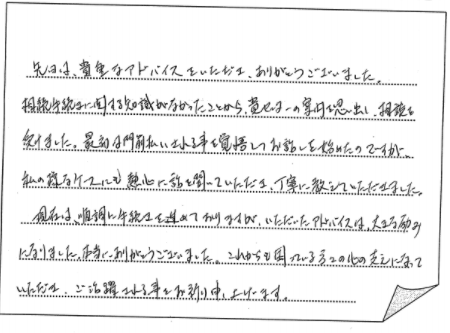 先日は、貴重なアドバイスをいただき、ありがとうございました。
相続手続きに関する知識がなかったことから、貴センターの事を思い出し、相談を
受けました。最初は門前払いされる事を覚悟してお話しを始めたのですが、
私の様なケースにも熱心に話を聞いていただき、丁寧に教えていただきました。
現在は、順調に手続きを進めておりますが、いただいたアドバイスは、大きな励み
になりました。本当にありがとうございました。これからも困っている方々の支えになって
いただき、ご活躍される事をお祈り申し上げます。